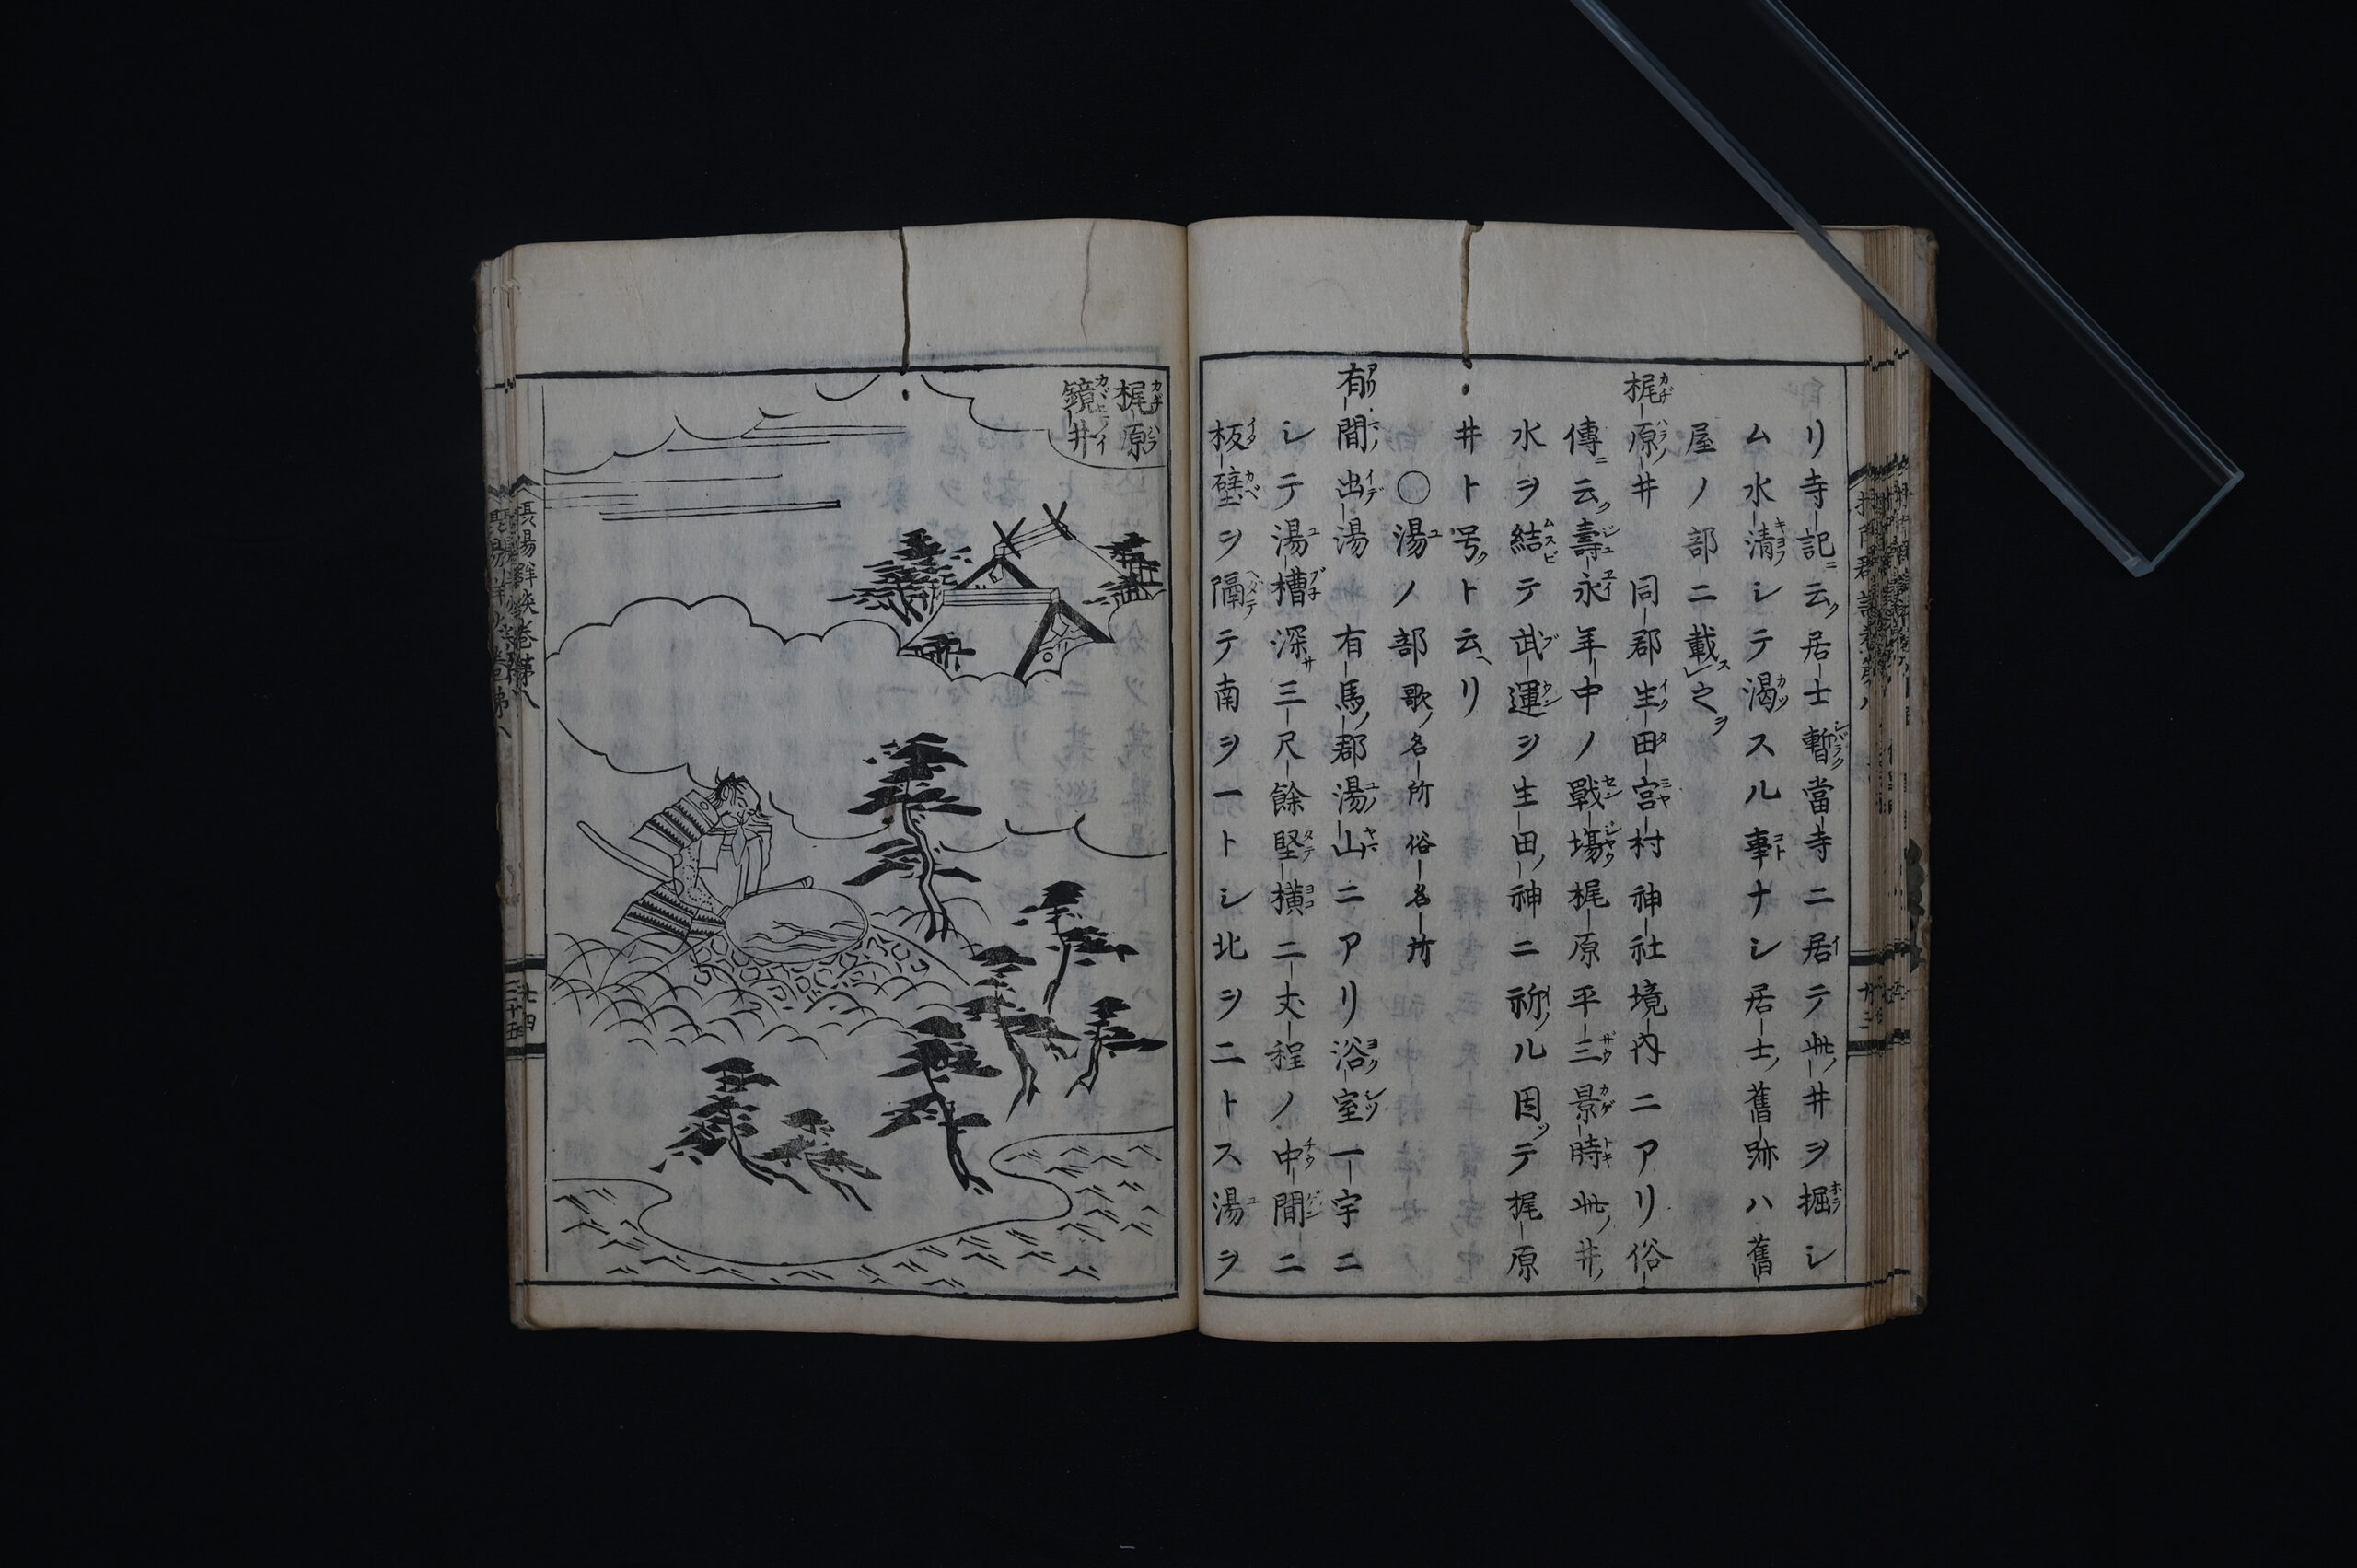 リ寺記ニ云ク居士暫當寺ニ居テ此ノ井ヲ掘シ
ム水清シテ渇スル事ナシ居士ノ舊跡ハ舊
屋ノ部ニ載ス之ヲ
梶原ノ井 同郡生田宮村神社境内ニアリ俗
傳ニ云ク壽永年中ノ戰場梶原平三景時此ノ井ノ
水ヲ結テ武運ヲ生田ノ神ニ祈ル因ッテ梶原
井ト号クト云ヘリ
○湯ノ部 歌ノ名所 俗名所
有間出湯 有馬ノ郡湯ノ山ニアリ浴室一宇ニ
シテ湯槽深サ三尺餘竪横二丈程ノ中間ニ
板壁ヲ隔テ南ヲ一トシ北ヲ二トス湯ヲ
梶原
鏡井
摂陽群談巻第八